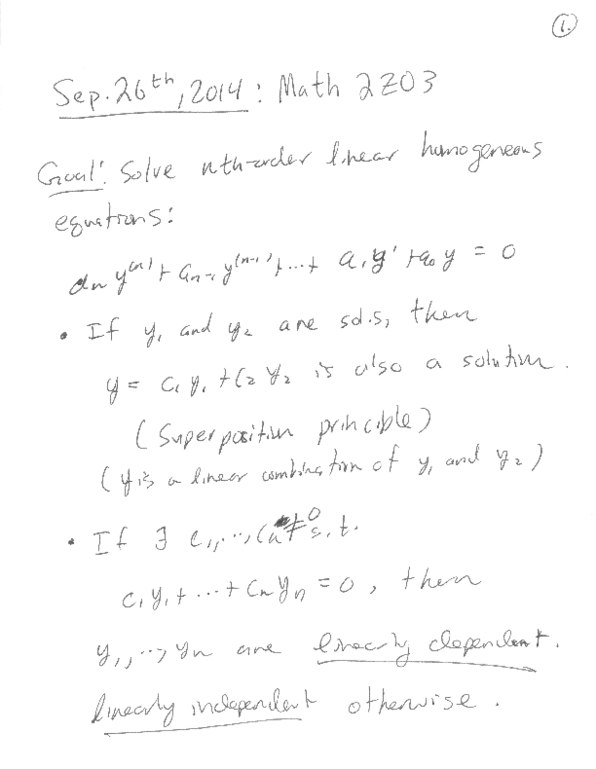 1.
Sep. 26th, 2014 : Math 2Z03
Goal: Solve nth-order linear homogeneous
equations:
aₙ y⁽ⁿ⁾ + aₙ₋₁ y⁽ⁿ⁻¹⁾ + ... + a₁ y' + a₀ y = 0
• If y₁ and y₂ are sol.s, then
y = c₁ y₁ + c₂ y₂ is also a solution.
(Superposition principle)
(y is a linear combination of y₁ and y₂)
• If ∃ c₁, ..., cₙ ≠ 0 s.t.
c₁ y₁ + ... + cₙ yₙ = 0, then
y₁, ..., yₙ are linearly dependent.
linearly independent otherwise.